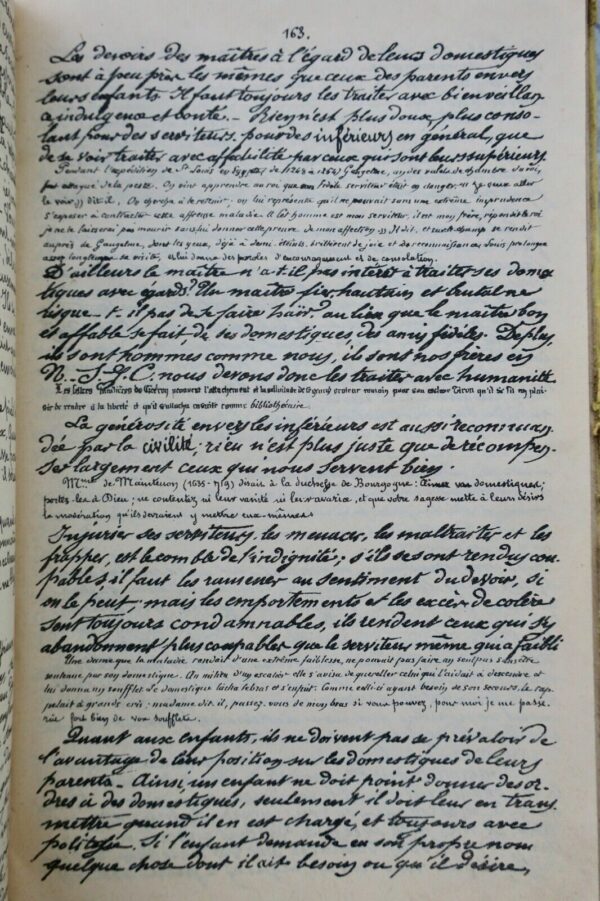 163.
Les devoirs des maîtres à l'égard de leurs domestiques
sont à peu près les mêmes que ceux des parents envers
leurs enfants. Il faut toujours les traiter avec bienveillan-
ce indulgence et bonté. - Rien n'est plus doux, plus conso-
lant pour des serviteurs, pour des inférieurs en général, que
de se voir traiter avec affabilité par ceux qui sont leurs supérieurs.
Pendant l'expédition de St Louis en Egypte (de 1248 à 1254) Gaugelme, un des valets de chambre du roi,
fut attaqué de la peste. On vint apprendre au roi que son fidèle serviteur était en danger: "Je veux aller
le voir" dit-il. On chercha à le retenir; on lui représenta qu'il ne pouvait sans une extrême imprudence
s'exposer à contracter cette affreuse maladie. "Cet homme est mon serviteur, il est mon frère, répondit le roi
je ne le laisserai pas mourir sans lui donner cette preuve de mon affection". Il dit, et sur le champ se rendit
auprès de Gaugelme, dont les yeux, déjà à demi éteints, brillèrent de joie et de reconnaissance. Louis prolongea
assez longtemps sa visite, et lui donna des paroles d'encouragement et de consolation.
D'ailleurs le maître n'a-t-il pas intérêt à traiter ses domes-
tiques avec égards? Un maître fier, hautain et brutal ne
risque-t-il pas de se faire haïr, au lieu que le maître bon
et affable se fait, de ses domestiques, des amis fidèles. De plus,
ils sont hommes comme nous, ils sont nos frères en
N.-S. J. C. nous devons donc les traiter avec humanité.
Les lettres familières de Cicéron prouvent l'attachement et la sollicitude de ce grand orateur romain pour son esclave Tiron qu'il se fit un plai-
sir de rendre à la liberté et qu'il s'attacha ensuite comme bibliothécaire.
La générosité envers les inférieurs est aussi recomman-
dée par la civilité; rien n'est plus juste que de récompen-
ser largement ceux qui nous servent bien.
Mme de Maintenon (1635-1719) disait à la duchesse de Bourgogne: Aimez vos domestiques;
portez-les à Dieu; ne contentez ni leur vanité ni leur avarice, et que votre sagesse mette à leurs désirs
la modération qu'ils devraient y mettre eux-mêmes.
Injurier ses serviteurs, les menacer, les maltraiter et les
frapper, est le comble de l'indignité; s'ils se sont rendus cou-
pables, il faut les ramener au sentiment du devoir, si
on le peut; mais les emportements et les excès de colère
sont toujours condamnables, ils rendent ceux qui s'y
abandonnent plus coupables que le serviteur même qui a failli
Une dame que la maladie rendait d'une extrême faiblesse, ne pouvait pas faire un seul pas sans être
soutenue par son domestique. Au milieu d'un escalier elle s'avisa de quereller celui qui l'aidait à descendre et
lui donna un soufflet. Le domestique lâcha le bras et s'enfuit. Comme celle-ci ayant besoin de son secours, le rap-
pelait à grands cris; madame dit-il, passez-vous de mon bras si vous pouvez, pour moi je me passe-
rai fort bien de vos soufflets.
Quant aux enfants, ils ne doivent pas se prévaloir de
l'avantage de leur position sur les domestiques de leurs
parents. - Ainsi un enfant ne doit point donner des or-
dres à des domestiques, seulement il doit leur en trans-
mettre quand il en est chargé, et toujours avec
politesse. Si l'enfant demande en son propre nom
quelque chose dont il ait besoin ou que il désire,